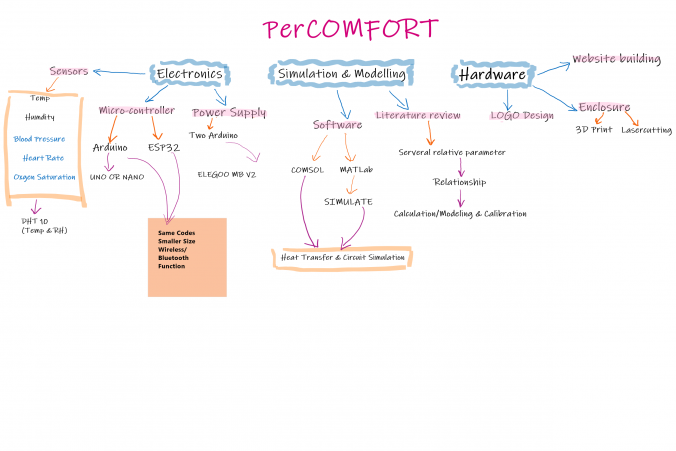 PerCOMFORT
Electronics
Simulation & Modelling
Hardware
Website building
Sensors
Micro-controller
Power Supply
Software
Literature review
LOGO Design
Enclosure
3D Print
Lasercutting
Temp
Humdity
Blood Pressure
Heart Rate
Oxgen Saturation
DHT 10
(Temp & RH)
Arduino
ESP32
UNO OR NANO
Two Arduino
ELEGOO MB V2
Same Codes
Smaller Size
Wireless/
Bluetooth
Function
COMSOL
MATLab
SIMULATE
Heat Transfer & Circuit Simulation
Serveral relative parameter
Relationship
Calculation/Modeling & Calibration